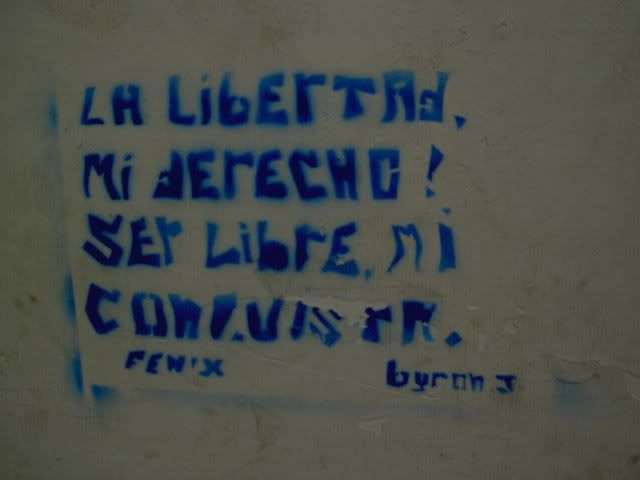 LA LibERTAd,
Mi dERECHO!
SEr LibrE, Mi
CONQUISTA.
FENIX
byron J